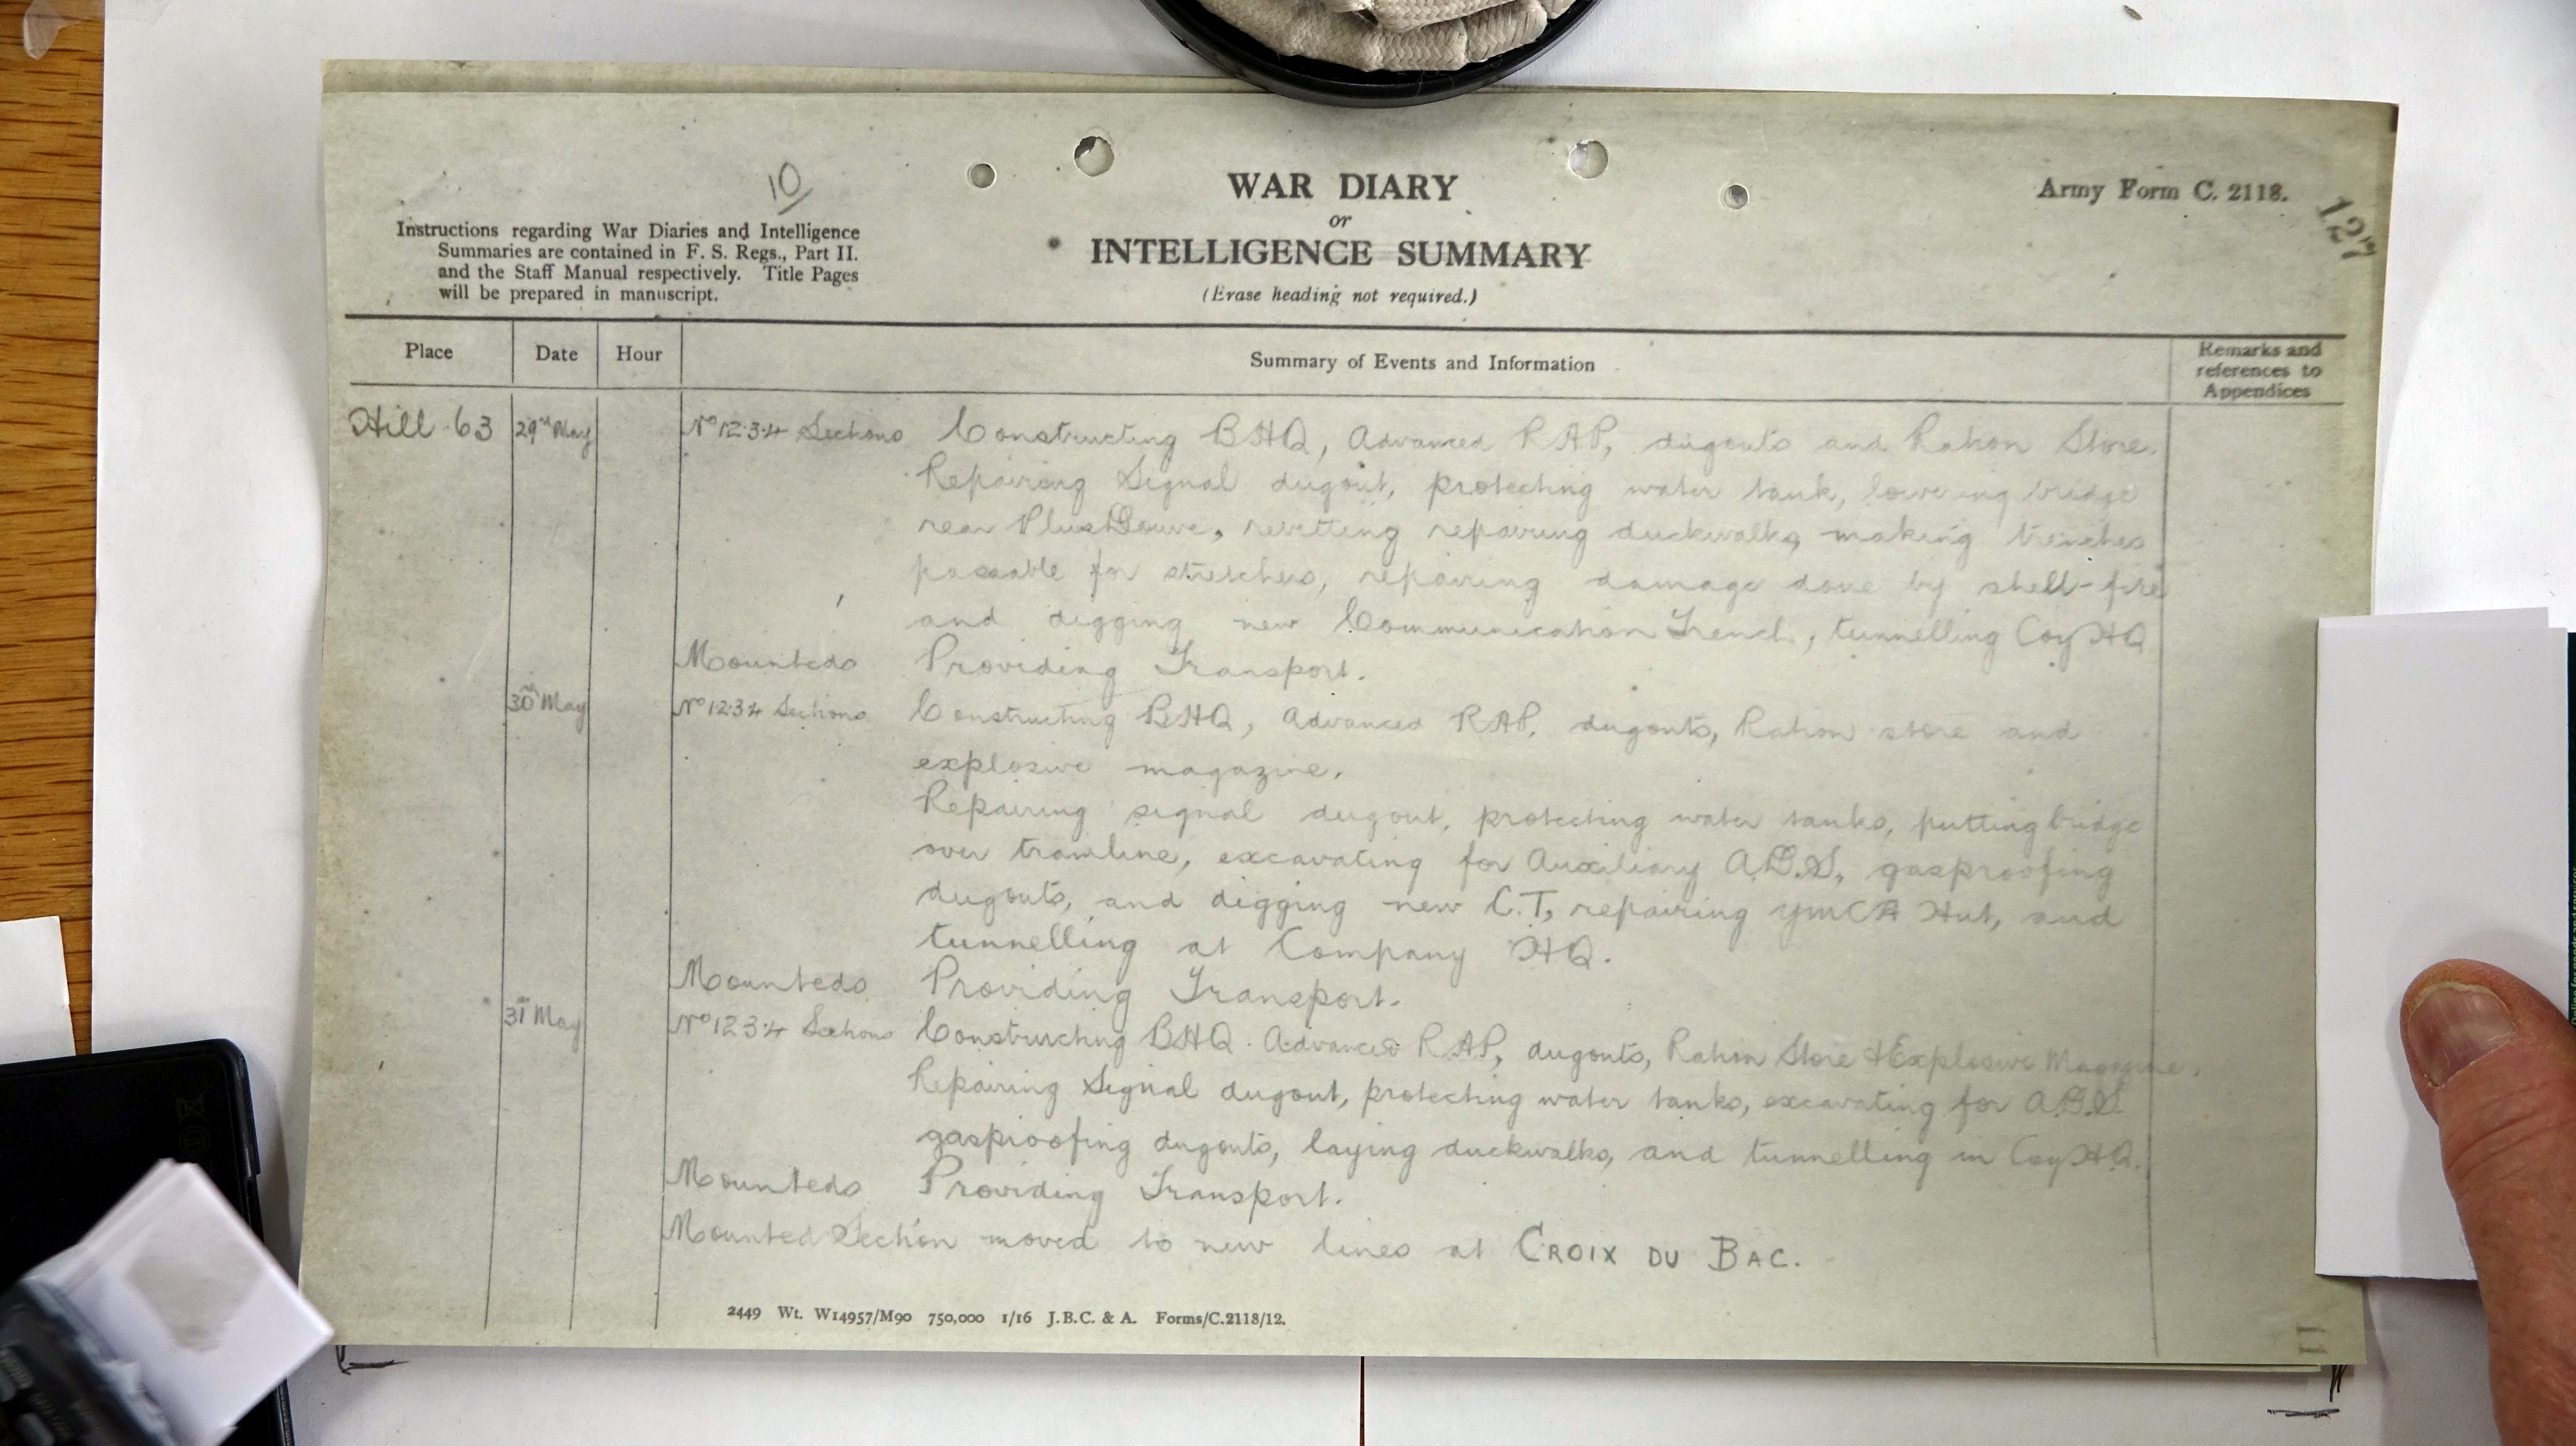 10
WAR DIARY
or
INTELLIGENCE SUMMARY
(Erase heading not required.)
Army Form C. 2118.
127
Instructions regarding War Diaries and Intelligence
Summaries are contained in F. S. Regs., Part II.
and the Staff Manual respectively. Title Pages
will be prepared in manuscript.
Place Date Hour Summary of Events and Information Remarks and references to Appendices
Hill 63 29th May No 1.2.3.4 Sections Constructing BHQ, Advanced RAP, dugouts and Ration Store.
Repairing Signal dugout, protecting water tank, lowering bridge
near Plus Douve, revetting repairing duckwalks, making trenches
passable for stretchers, repairing damage done by shell-fire
and digging new Communication Trench, tunnelling Coy HQ
Mounteds Providing Transport.
30th May No 1.2.3.4 Sections Constructing BHQ, Advanced RAP, dugouts, Ration store and
explosive magazine.
Repairing signal dugout, protecting water tanks, putting bridge
over tramline, excavating for Auxiliary A.D.S, gasproofing
dugouts, and digging new C.T, repairing YMCA Hut, and
tunnelling at Company HQ.
Mounteds Providing Transport.
31st May No 1.2.3.4 Sections Constructing BHQ. Advanced RAP, dugouts, Ration Store & Explosive Magazine.
Repairing Signal dugout, protecting water tanks, excavating for A.D.S.
gasproofing dugouts, laying duckwalks, and tunnelling in Coy HQ.
Mounteds Providing Transport.
Mounted Section moved to new lines at CROIX DU BAC.
2449 Wt. W14957/M90 750,000 1/16 J.B.C. & A. Forms/C.2118/12.